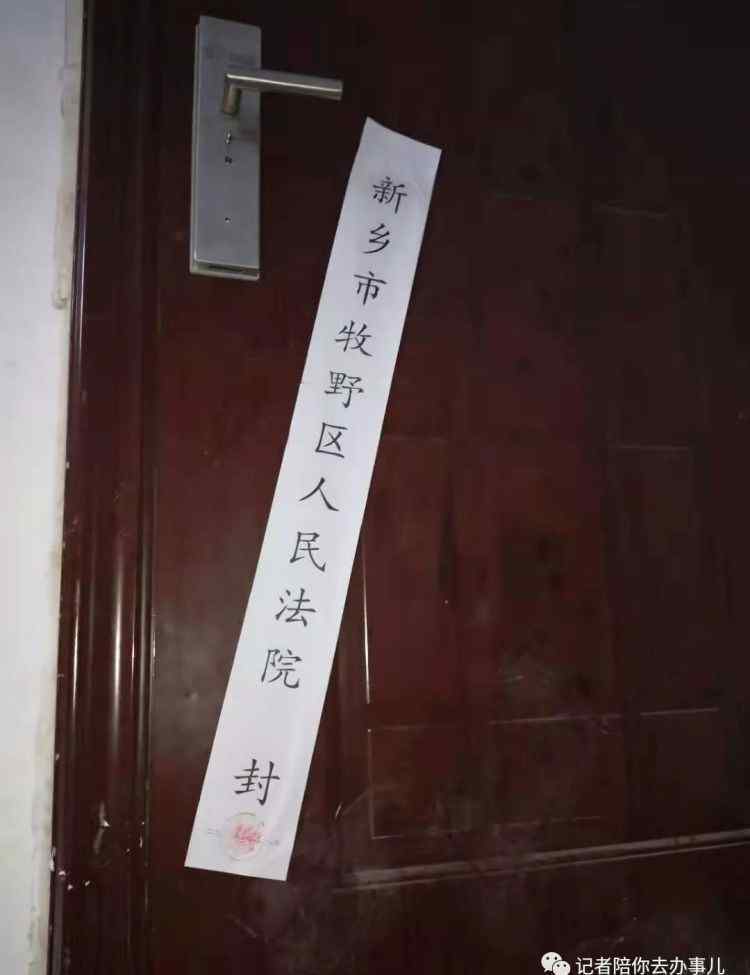 新乡市牧野区人民法院 封
记者陪你去办事儿